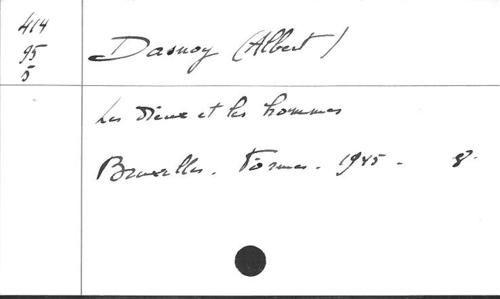 414
95
5
Dasnoy (Albert)
Les Dieux et les hommes
Bruxelles. Formes. 1945. 8°.